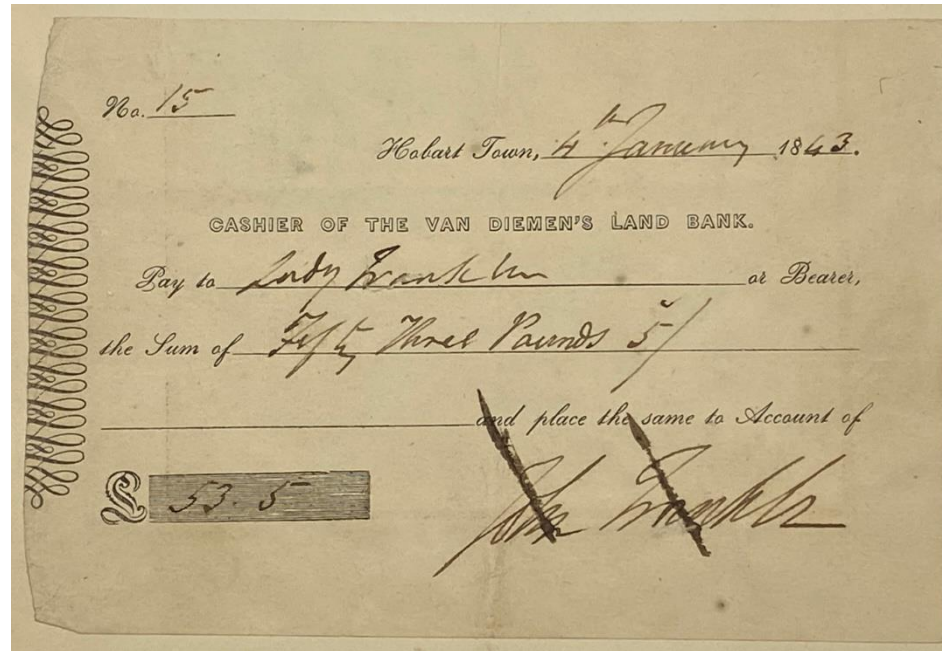 No. 15
Hobart Town, 4th January 1843.
CASHIER OF THE VAN DIEMEN'S LAND BANK.
Pay to Lady Franklin or Bearer,
the Sum of Fifty Three Pounds 5/
and place the same to Account of
£ 53. 5 John Franklin